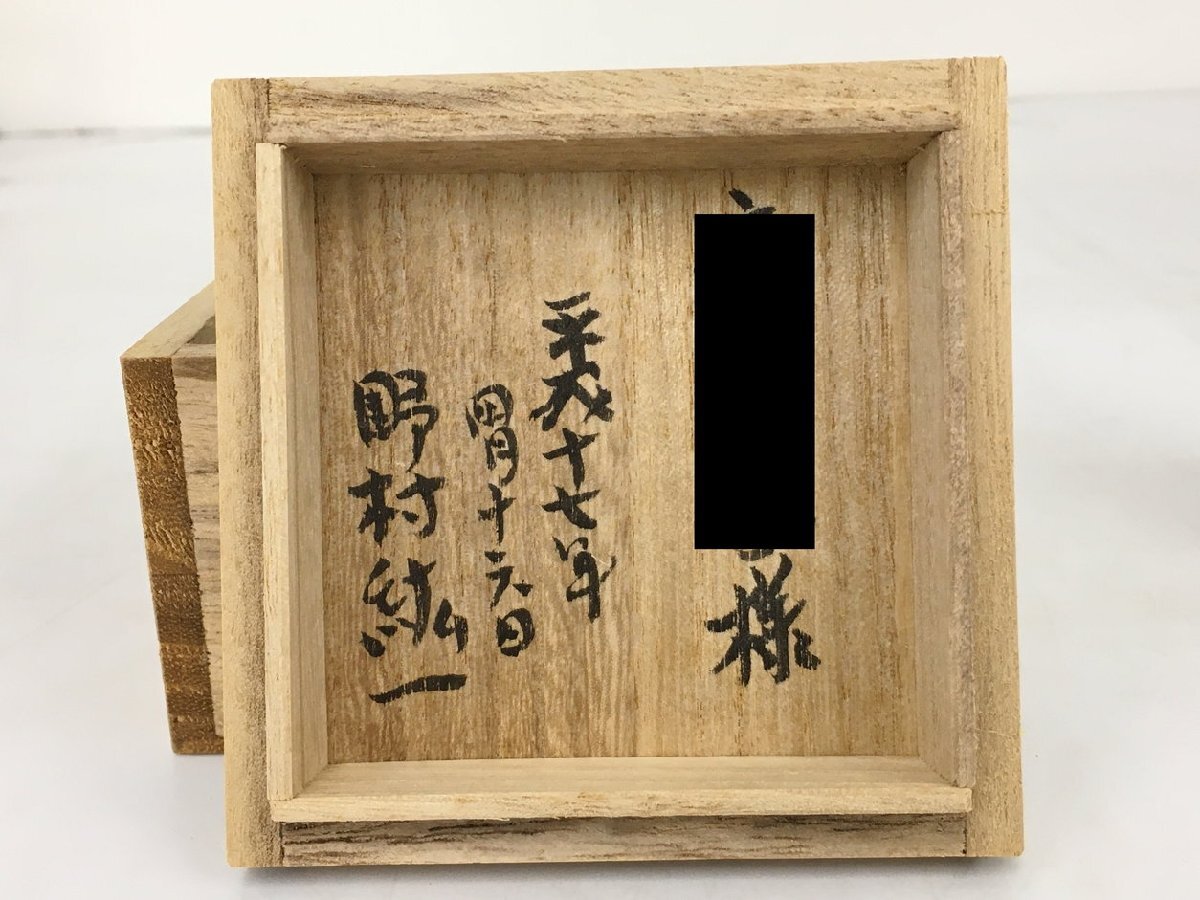 様
平成十七年
四月十六日
野村紘一